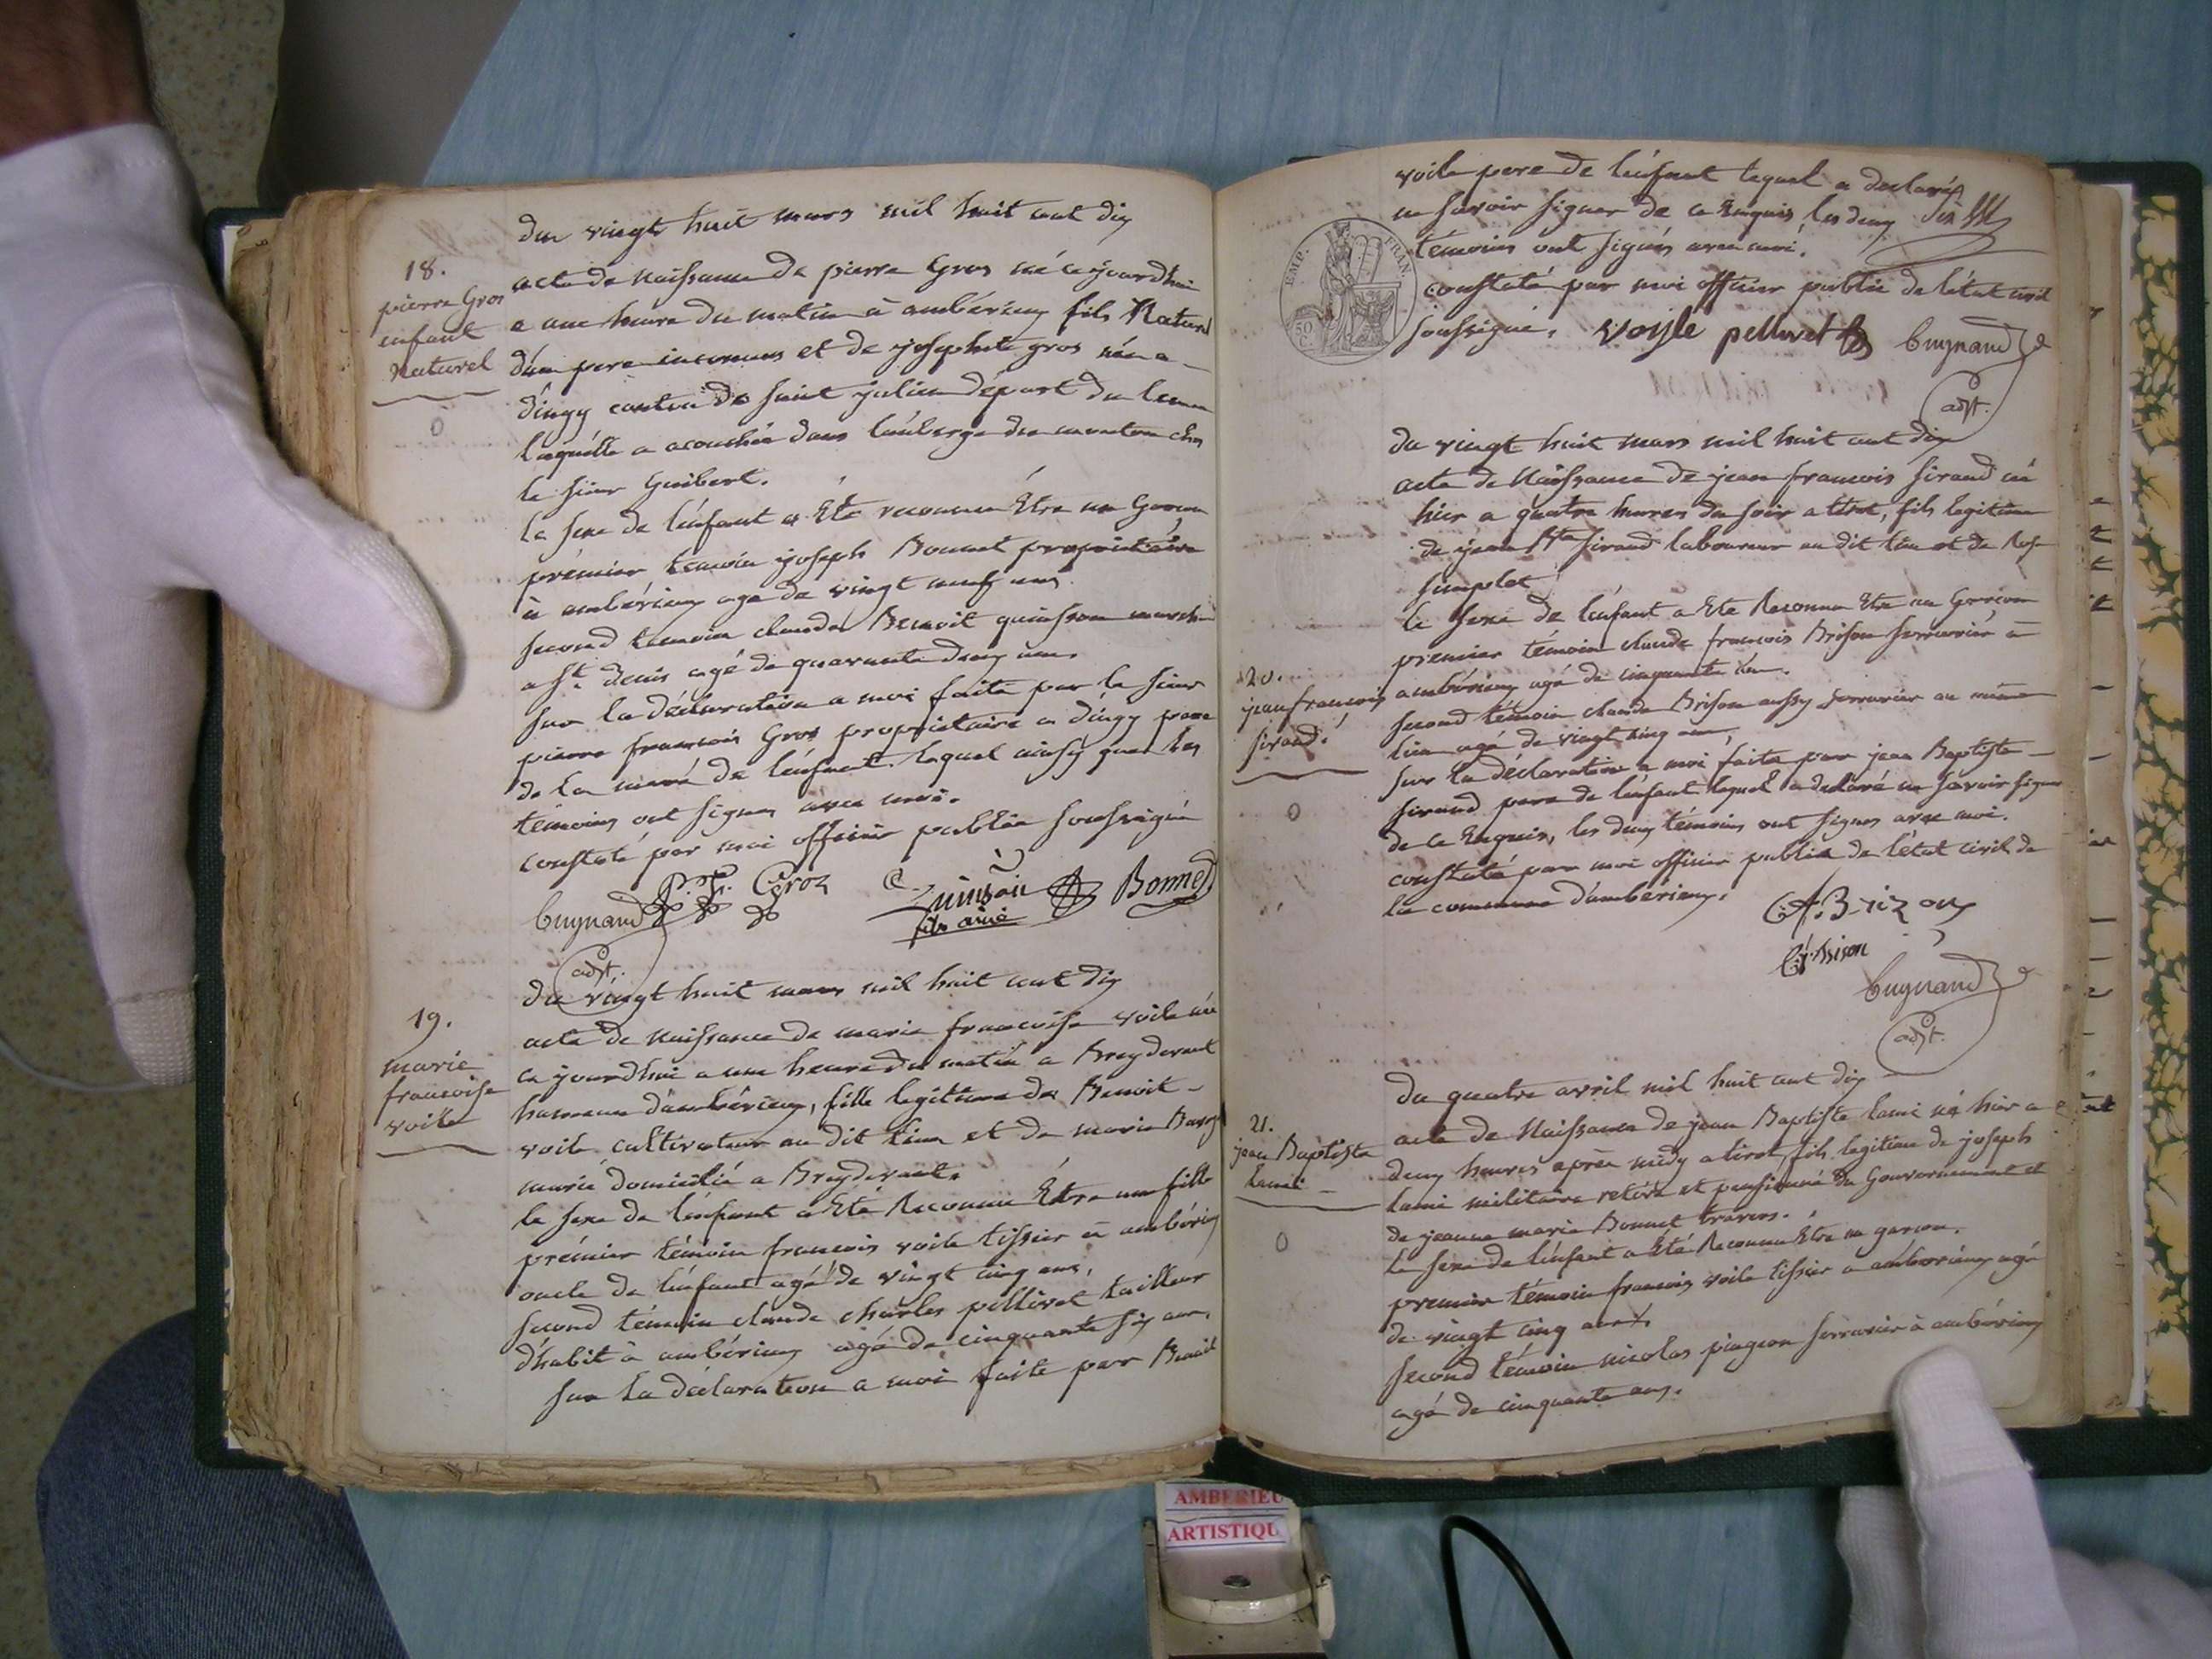 du vingt huit mars mil huit cent dix
18.
pierre Gros
enfant
Naturel
acte de Naissance de pierre Gros né ce jourdhui
a une heure du matin à ambérieux fils Naturel
d'un pere inconnus et de josephte gros née a
d'ingy canton de saint julien départ du leman
laquélle a acouchée dans l'auberge du mouton chez
le sieur Guibert.
le sexe de l'énfant a Eté reconnu Etre un Garcon
prémier temoin joseph Bonnet propriétaire
à ambérieux age de vingt neuf ans.
second temoin claude Benoit quinson march
a St. denis agé de quarante deux ans.
sur la déclaration a moi faite par le sieur
pierre francois Gros propriétaire a d'ingy pere
de la meré de l'énfant. lequel ainsy que les
témoins ont signes avec moi.
constaté par moi officier public soussigné
Cuynaud P. F. Groz C. Quinson fils ainé Bonnet
adjt.
19.
marie
francoise
voile
du vingt huit mars mil huit cent dix
acte de naissance de marie francoise voile née
ce jourdhui a une heure du matin a Breydevent
hameau d'ambérieux, fille legitime de Benoit
voile cultivateur au dit lieu et de marie
marié domicilié a Breydevent.
le sexe de l'énfant a Eté Reconnu Etre une fille
prémier témoin francois voile tissier à ambérieux
oncle de l'énfant agé de vingt cinq ans,
second témoin claude charles pellivet tailleur
d'habit à ambérieux agé de cinquante six ans.
sur la déclaration a moi faite par Benoit
voile pere de l'énfant lequel a declaré
ne savoir signer de ce Enquis les deux
témoins ont signés avec moi.
constaté par moi officier public de l'état civil
soussigné. voyle pellivet Cuynaud
adjt.
EMP. FRAN.
50 C.
20.
jean francois
sirand.
du vingt huit mars mil huit cent dix
acte de Naissance de jean francois sirand né
hier a quatre heures du soir a tiret, fils legitime
de jean Bte sirand laboureur au dit lieu et de Rose
simplet
le sexe de l'énfant a Ete Reconnu Etre un Garcon
premier témoin claude francois Brison serrurier à
ambérieux agé de cinquante un.
second témoin claude Brison aussy serrurier au même
lieu agé de vingt cinq ans,
sur la déclaration a moi faite par jean Baptiste
sirand pere de l'énfant lequel a declaré ne savoir signer
de ce Enquis, les deux témoins ont signes avec moi.
constaté par moi officier public de l'état civil de
la commune d'ambérieux.
Brizon
Brison
Cuynaud
adjt.
21.
jean Baptiste
lami
du quatre avril mil huit cent dix
acte de Naissance de jean Baptiste lami né hier a
deux heures aprés midy a tiret, fils legitime de joseph
lami militaire retiré et pensionné du Gouvernement et
de jeanne marie Bonnet travers.
le sexe de l'énfant a Eté Reconnu Etre un garcon.
premier témoin francois voile tissier a ambérieux agé
de vingt cinq ans.
second témoin nicolas pingeon serrurier à ambérieux
agé de cinquante ans.
AMBERIEU
ARTISTIQU